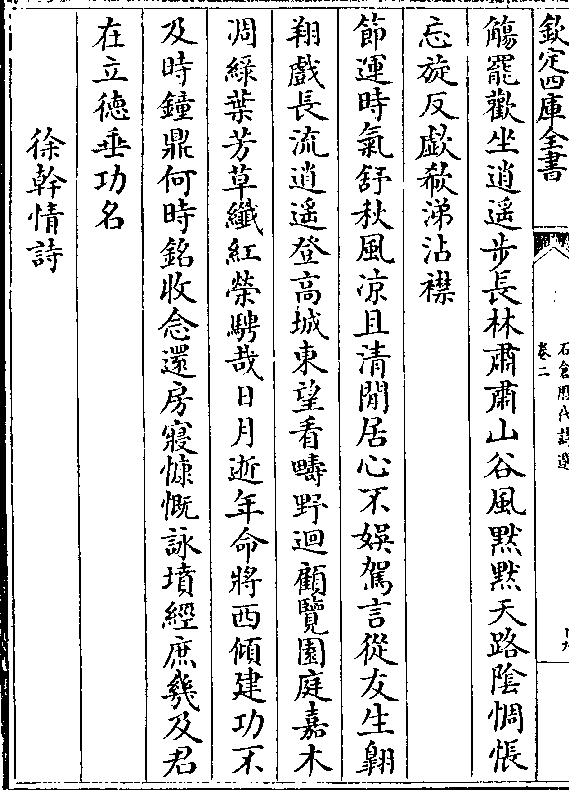 欽定四庫全書
石倉歷代詩選
卷二
觴罷歡坐逍遥步長林肅肅山谷風黙黙天路陰惆悵
忘旋反歔欷涕沾襟
節運時氣舒秋風凉且清閒居心不娯駕言從友生翺
翔戲長流逍遥登高城東望看疇野迴顧覽園庭嘉木
凋緑葉芳草纖紅榮騁哉日月逝年命將西傾建功不
及時鐘鼎何時銘收念還房寝慷慨詠墳經庶幾及君
在立德垂功名
徐幹情詩